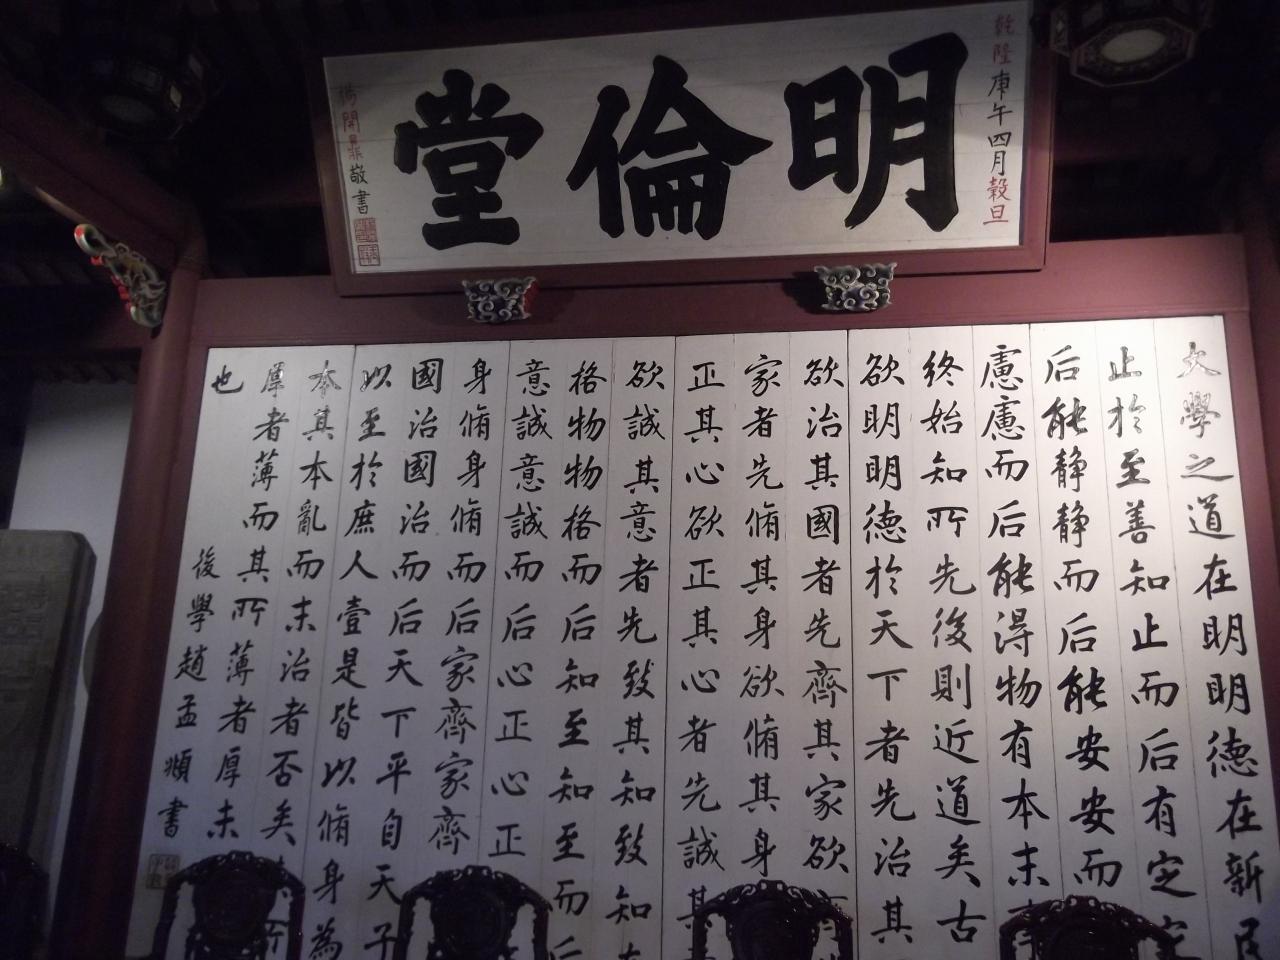 乾隆庚午四月穀旦
明倫堂
楊開鼎敬書
大學之道在明明德在新民
止於至善知止而后有定定
后能静静而后能安安而
慮慮而后能得物有本末事
終始知所先後則近道矣古
欲明明德於天下者先治其
欲治其國者先齊其家欲
家者先脩其身欲脩其身
正其心欲正其心者先誠其
欲誠其意者先致其知致知在
格物物格而后知至知至而后
意誠意誠而后心正心正
身脩身脩而后家齊家齊
國治國治而后天下平自天子
以至於庶人壹是皆以脩身為
本其本亂而末治者否矣
厚者薄而其所薄者厚未
也
後學趙孟頫書